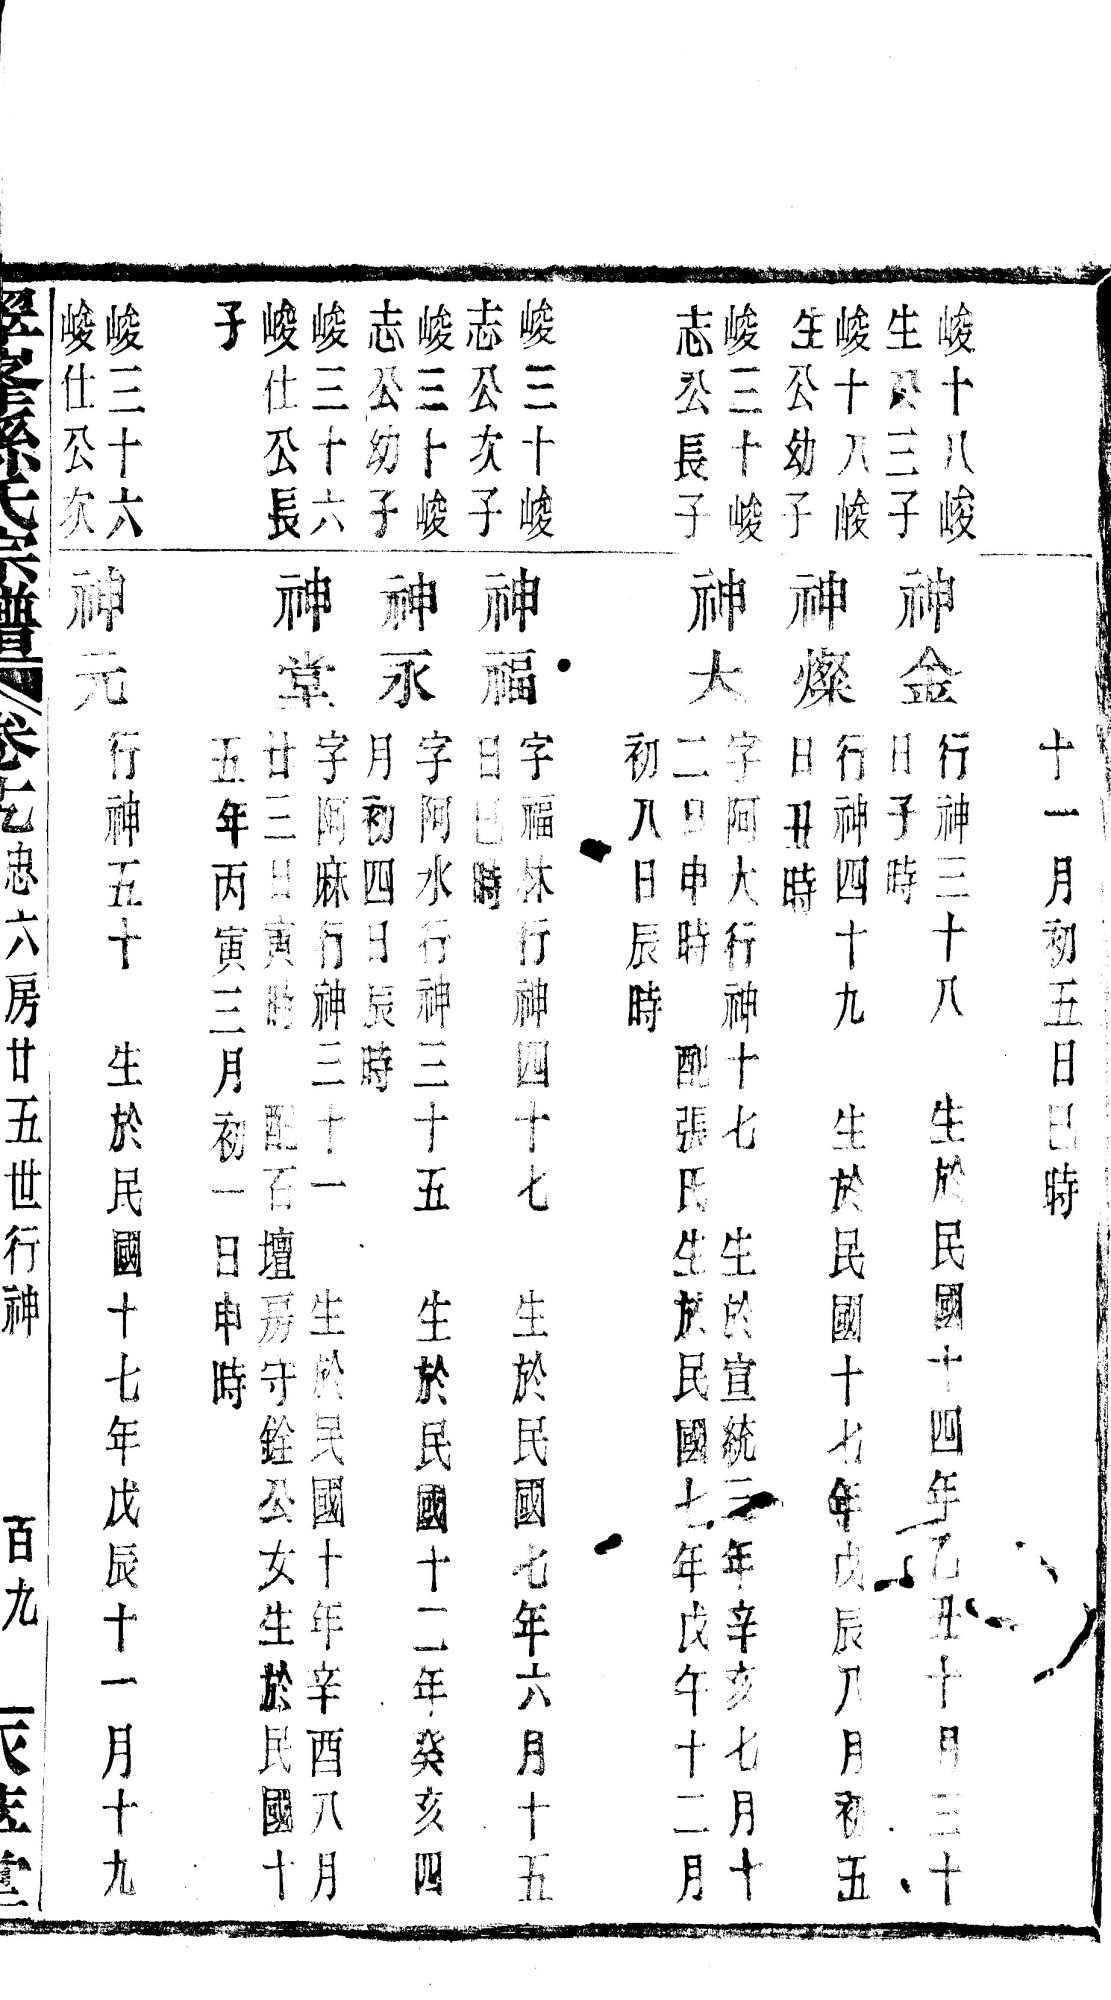 十一月初五日巳時
峻十八峻
生公三子
神金
行神三十八　生於民國十四年乙丑十月三十
日子時
峻十八峻
生公幼子
神燦
行神四十九　生於民國十七年戊辰八月初五
日丑時
峻三十峻
志公長子
神大
字阿大行神十七　生於宣統三年辛亥七月十
二日申時　配張氏生於民國七年戊午十二月
初八日辰時
峻三十峻
志公次子
神福
字福林行神四十七　生於民國七年六月十五
日巳時
峻三十峻
志公幼子
神永
字阿水行神三十五　生於民國十二年癸亥四
月初四日辰時
峻三十六
峻仕公長
子
神堂
字阿麻行神三十一　生於民國十年辛酉八月
廿三日寅時　配百壇房守銓公女生於民國十
五年丙寅三月初一日申時
峻三十六
峻仕公次
神元
行神五十　生於民國十七年戊辰十一月十九
孫氏宗譜
卷七
忠六房廿五世行神
百九
堂